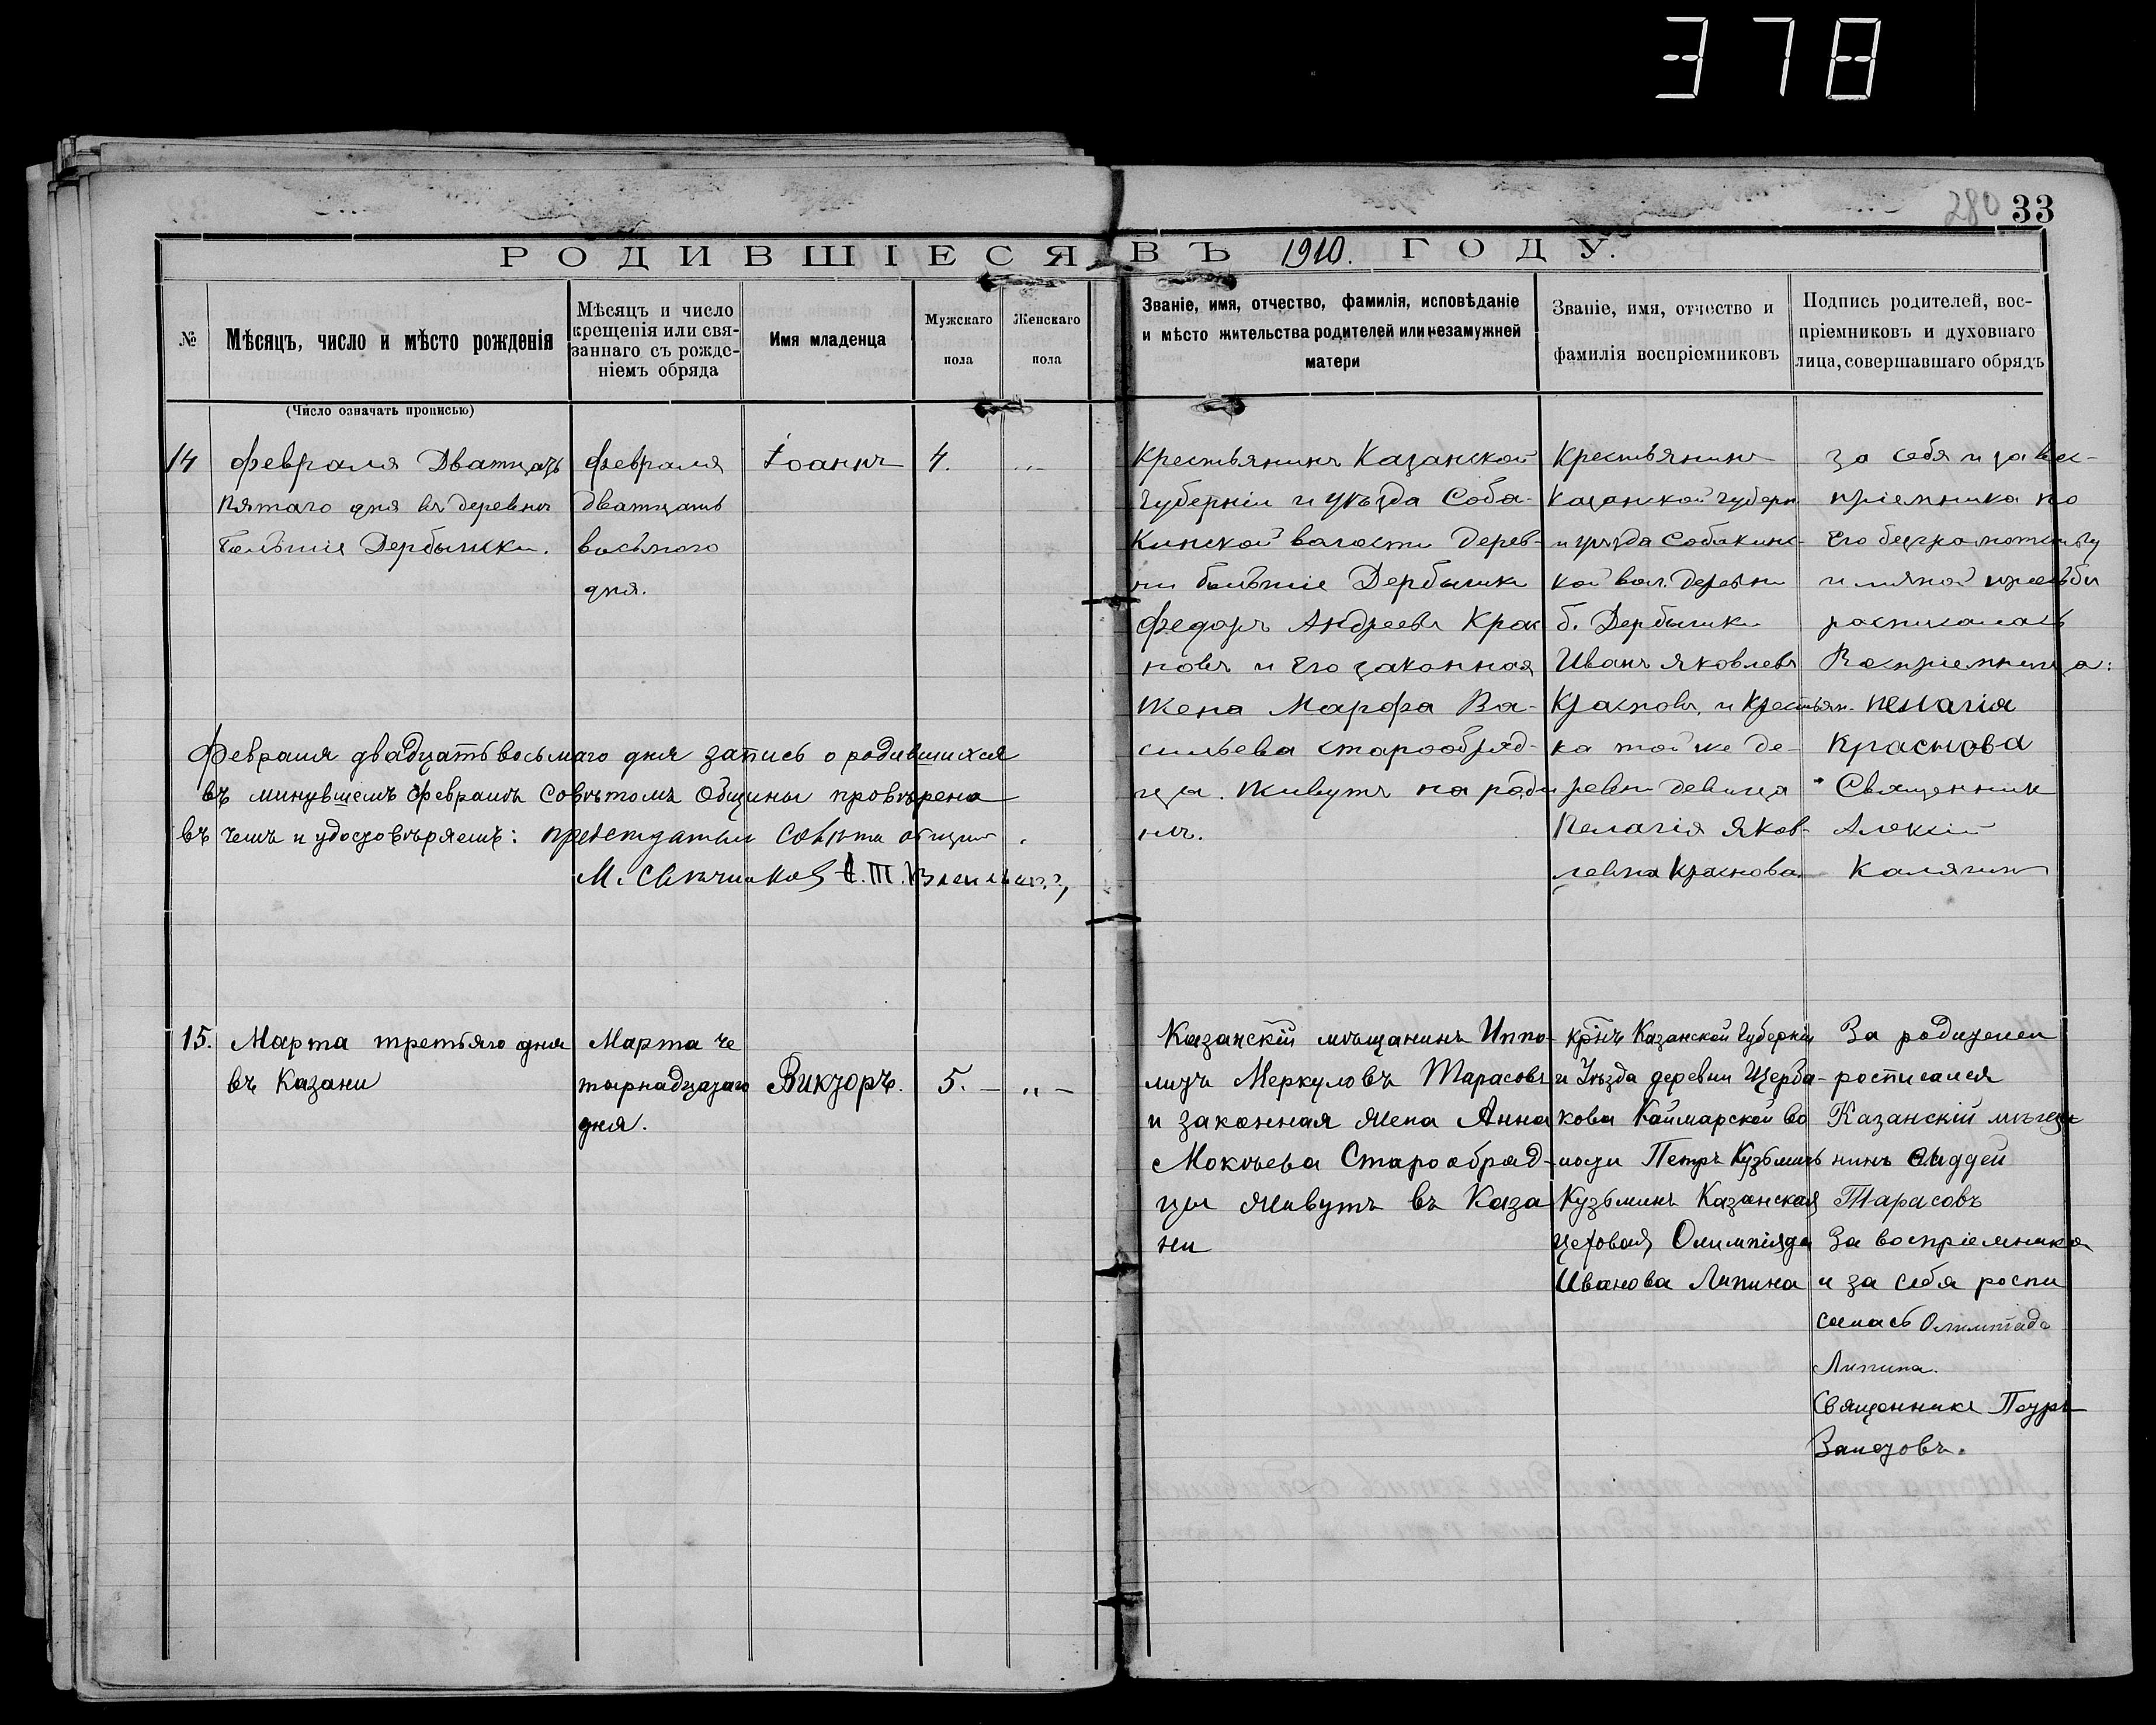 378
280 33
РОДИВШІЕСЯ ВЪ 1910. ГОДУ.
№
Мѣсяцъ, число и мѣсто рожденія
(Число означать прописью)
Мѣсяцъ и число
крещенія или свя-
заннаго съ рожде-
ніемъ обряда
Имя младенца
Мужскаго
пола
Женскаго
пола
Званіе, имя, отчество, фамилія, исповѣданіе
и мѣсто жительства родителей или незамужней
матери
Званіе, имя, отчество и
фамилія воспріемниковъ
Подпись родителей, вос-
пріемниковъ и духовнаго
лица, совершавшаго обрядъ
14
Февраля Дватцать
Пятаго дня въ деревнѣ
Большіе Дербышки.
Февраля
дватцать
восьмого
дня.
Іоаннъ
4.
Крестьянинъ Казанской
Губерніи и уѣзда Соба-
кинской волости дерев-
ни большіе Дербышки
Федоръ Андреевъ Крас
новъ и его законная
жена Марфа Ва-
сильева старообряд-
цы. Живутъ на роди
нѣ.
Крестьянинъ
Казанской губерн
и уѣзда Собакинс-
кой вол. деревни
б. Дербышки
Иванъ Яковлевъ
Красновъ, и Крестьян.
ка той же де-
ревни девица
Пелагія Яков-
левна Краснова.
За себя и за вос-
пріемника по
его безграмотству
и личной прозьбы
росписалась
Воспріемница:
Пелагія
Краснова
Священник
Алексій
Калягин
Февраля двадцать восьмаго дня запись о родившихся
въ минувшемъ Февралѣ Совѣтомъ Общины провѣрена
въ чемъ и удостовѣряемъ: председатель совѣта общин
М. Свѣчников
15.
Марта третьяго дня
въ Казани
Марта че
тырнадцатаго
дня.
Викторъ.
5. — „ —
Казанскій мѣщанинъ Иппо-
литъ Меркуловъ Тарасовъ
и законная жена Анна
Мокѣева Старообряд-
цы живутъ въ Каза
ни
Крнъ Казанской Губерніи
и Уѣзда деревни Щерба-
кова Каймарской во
лости Петръ Кузьмичъ
Кузьминъ Казанская
цеховая Олимпіяда
Иванова Липина
За родителей
росписался
Казанскій мѣща
нинъ Фаддей
Тарасовъ
За воспріемника
и за себя роспи
салась Олимпіада
Липина.
Священникъ Петръ
Залетовъ.